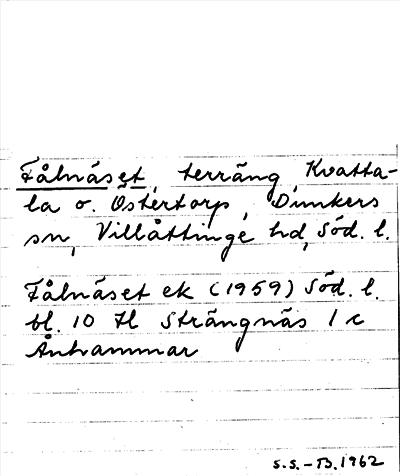 Fålnäset, terräng, Kvatta-
la o. Östertorp, Dunkers
sn, Villåttinge hd, Söd. l.
Fålnäset ek (1959) Söd. l.
bl. 10 H Strängnäs 1 c
Ånhammar
S.S.-B. 1962